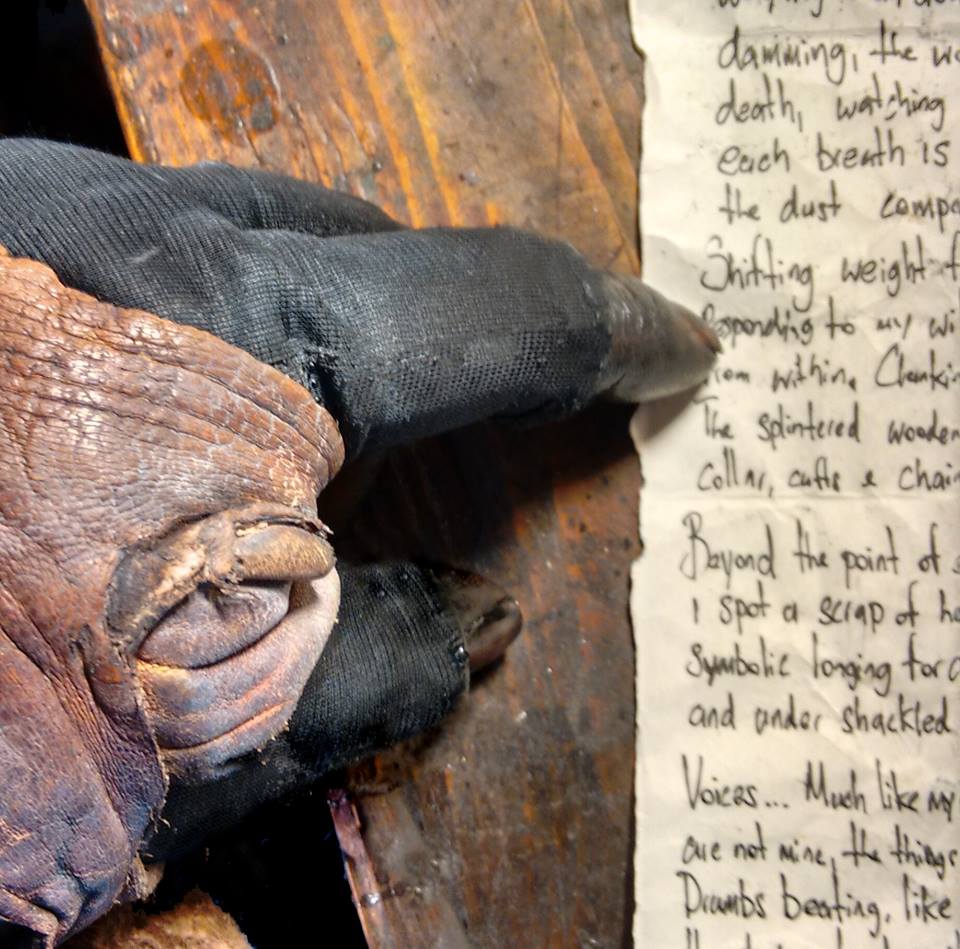 damming, the wo
death, watching
each breath is
the dust compo
Shifting weight f
Responding to my wi
from within. Clenkin
The splintered wooden
collar, cuffs & chain
Beyond the point of s
I spot a scrap of ho
Symbolic longing for a
and under shackled
Voices... Much like my
are not mine, the things
Drumbs beating, like